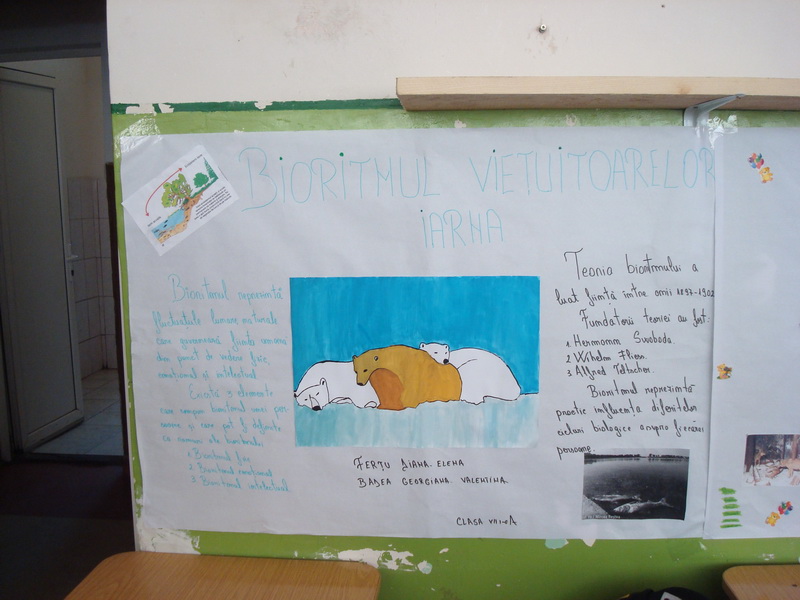 BIORITMUL VIEȚUITOARELOR
IARNA
Bioritmul reprezintă
fluctuațiile lumare naturale
care guvernează ființa umană
din punct de vedere fizic,
emoțional și intelectual.
Există 3 elemente
care compun bioritmul unei per
soane și care pot fi definite
ca numar ale bioritmului
1. Bioritmul fizic
2. Bioritmul emoțional
3. Bioritmul intelectual.
Teoria bioritmului a
luat ființă între anii 1897-1902
Fundatorii teoriei au fost:
1 Hermann Swoboda.
2 Wilhelm Fliess.
3 Alfred Teltscher.
Bioritmul reprezintă
practic influența diferitelor
ciclări biologice asupra fiecărei
persoane.
FERȚU DIANA. ELENA
BADEA GEORGIANA. VALENTINA.
CLASA VIII-A